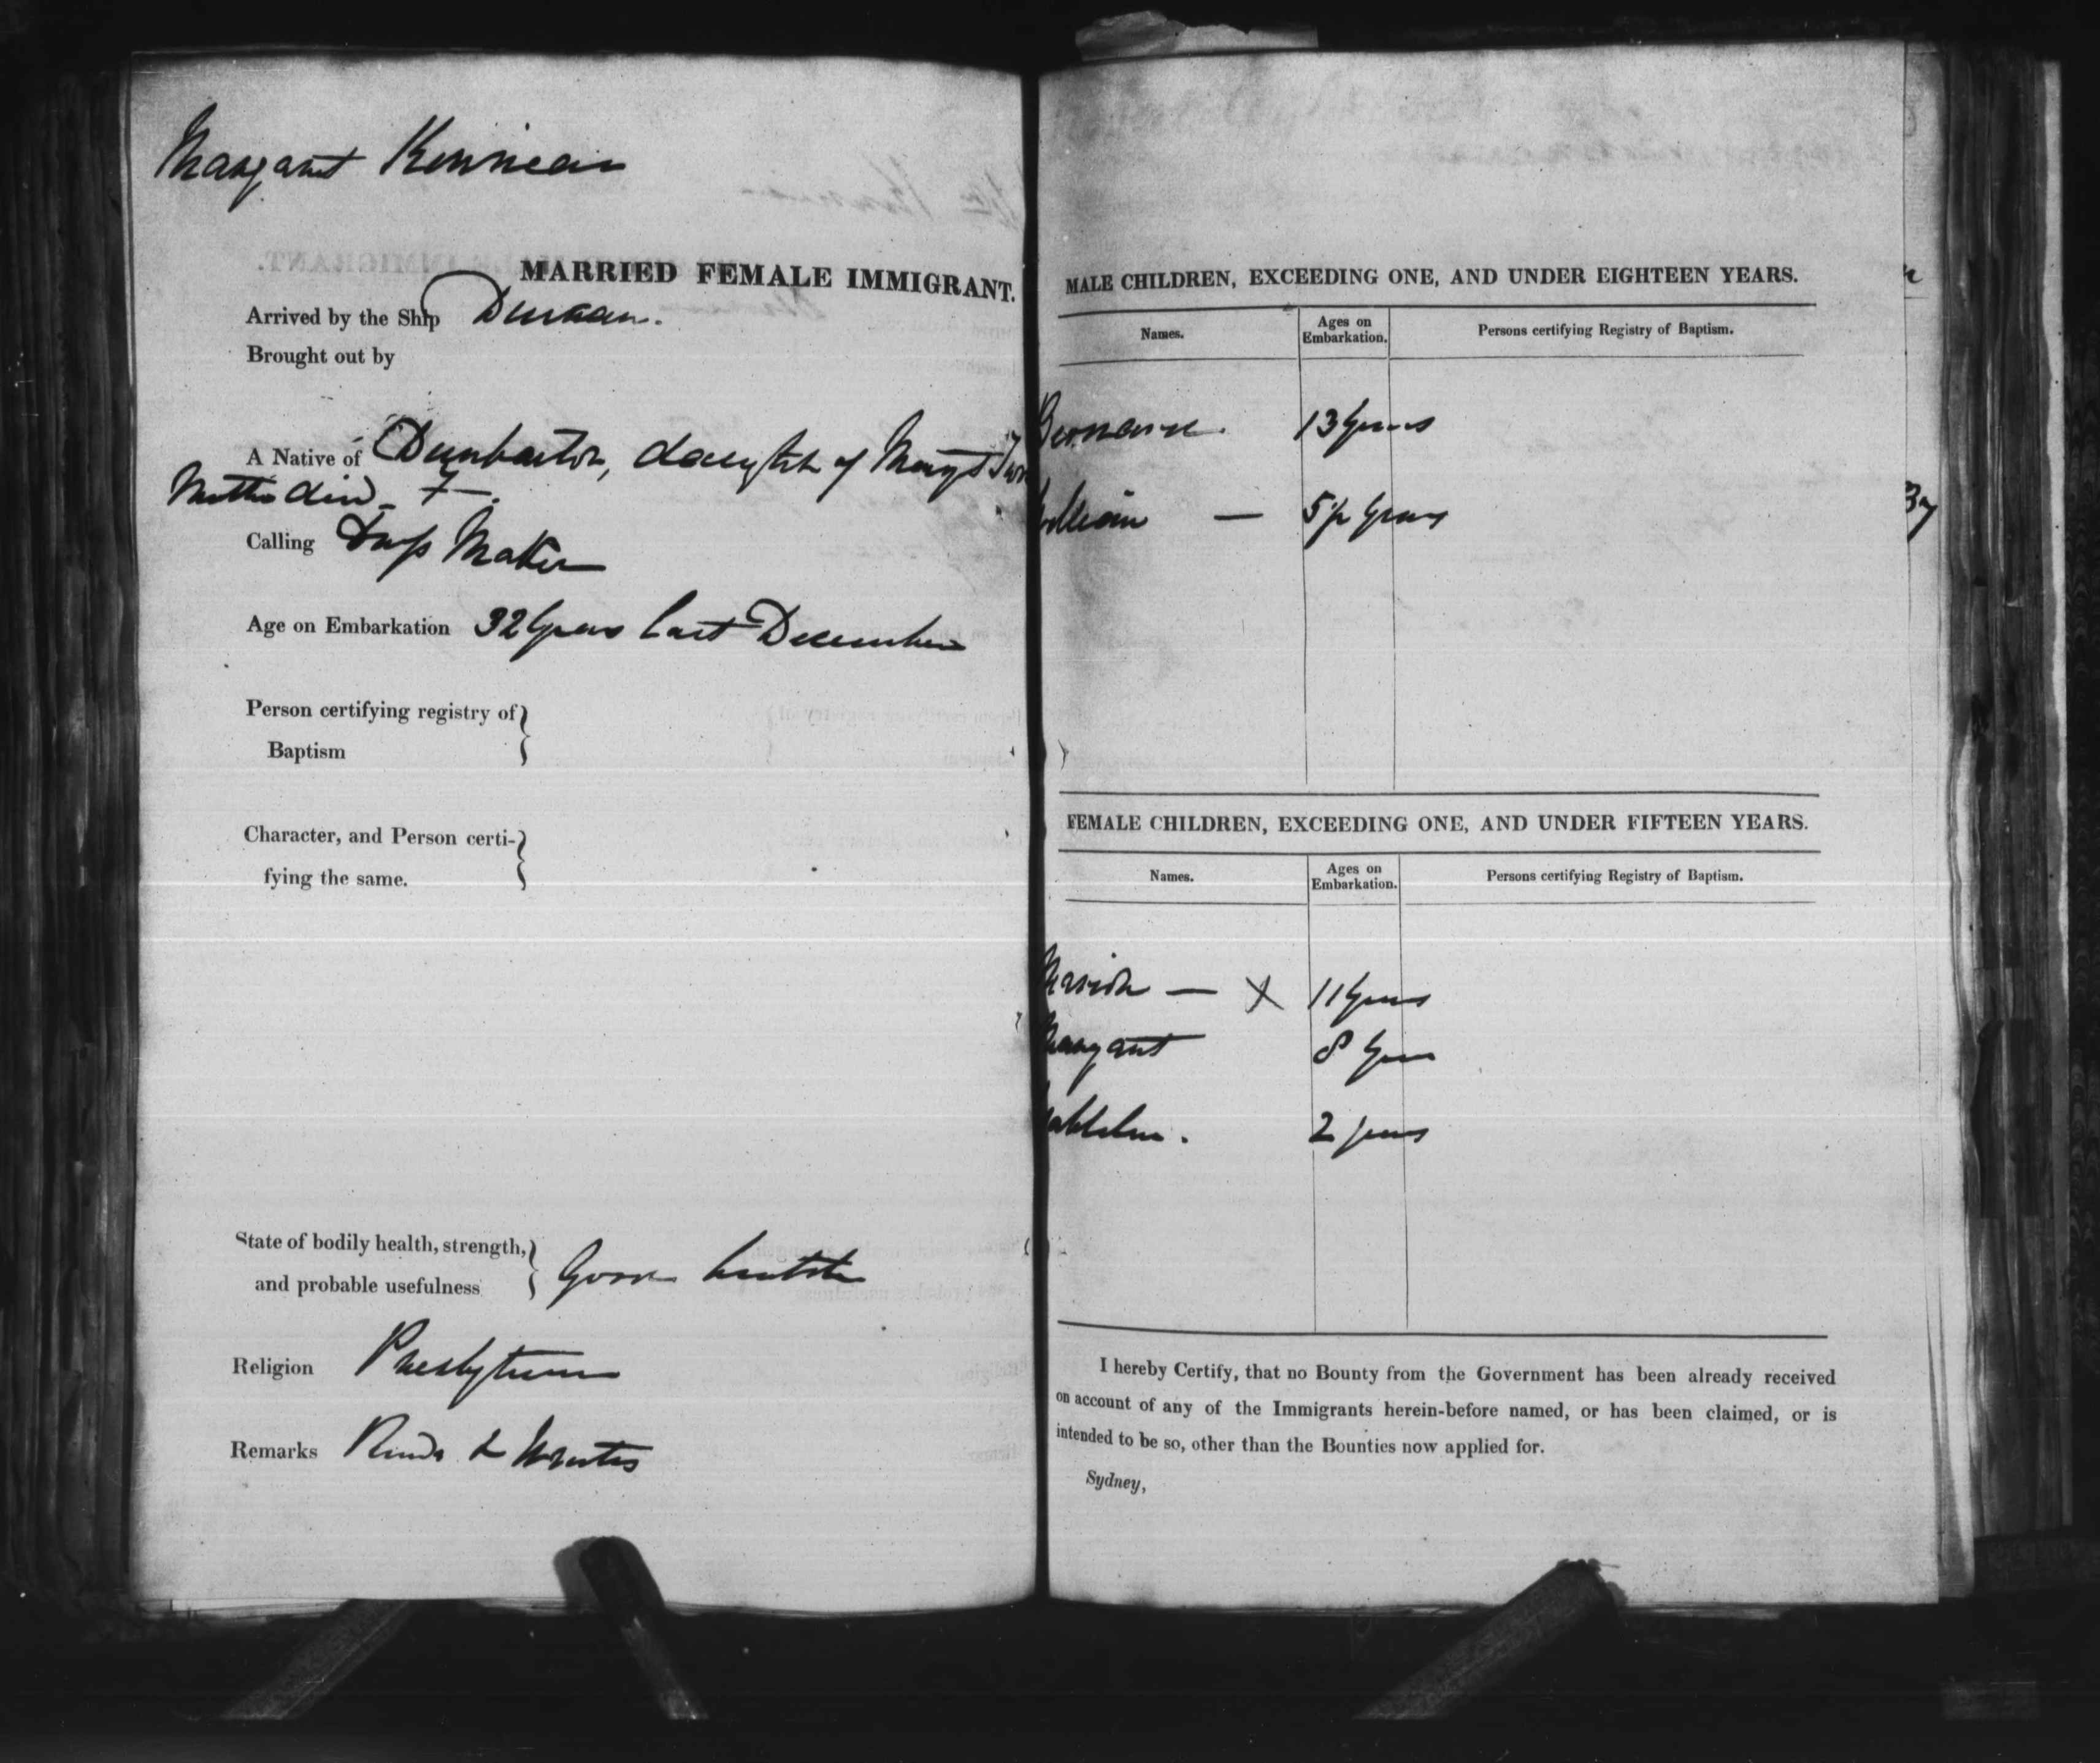 Margaret Kennear
MARRIED FEMALE IMMIGRANT.
Arrived by the Ship Duncan.
Brought out by
A Native of Dumbarton, daughter of
Mother died
Calling Dress Maker
Age on Embarkation 32 Years last December
Person certifying registry of
Baptism
Character, and Person certi-
fying the same.
State of bodily health, strength,
and probable usefulness Good health
Religion Presbyterian
Remarks Reads & Writes
MALE CHILDREN, EXCEEDING ONE, AND UNDER EIGHTEEN YEARS.
Names. Ages on Embarkation. Persons certifying Registry of Baptism.
13 Years
William — Years
FEMALE CHILDREN, EXCEEDING ONE, AND UNDER FIFTEEN YEARS.
Names. Ages on Embarkation. Persons certifying Registry of Baptism.
Marion — X 11 Years
Margaret 8 Years
2 years
I hereby Certify, that no Bounty from the Government has been already received
on account of any of the Immigrants herein-before named, or has been claimed, or is
intended to be so, other than the Bounties now applied for.
Sydney,